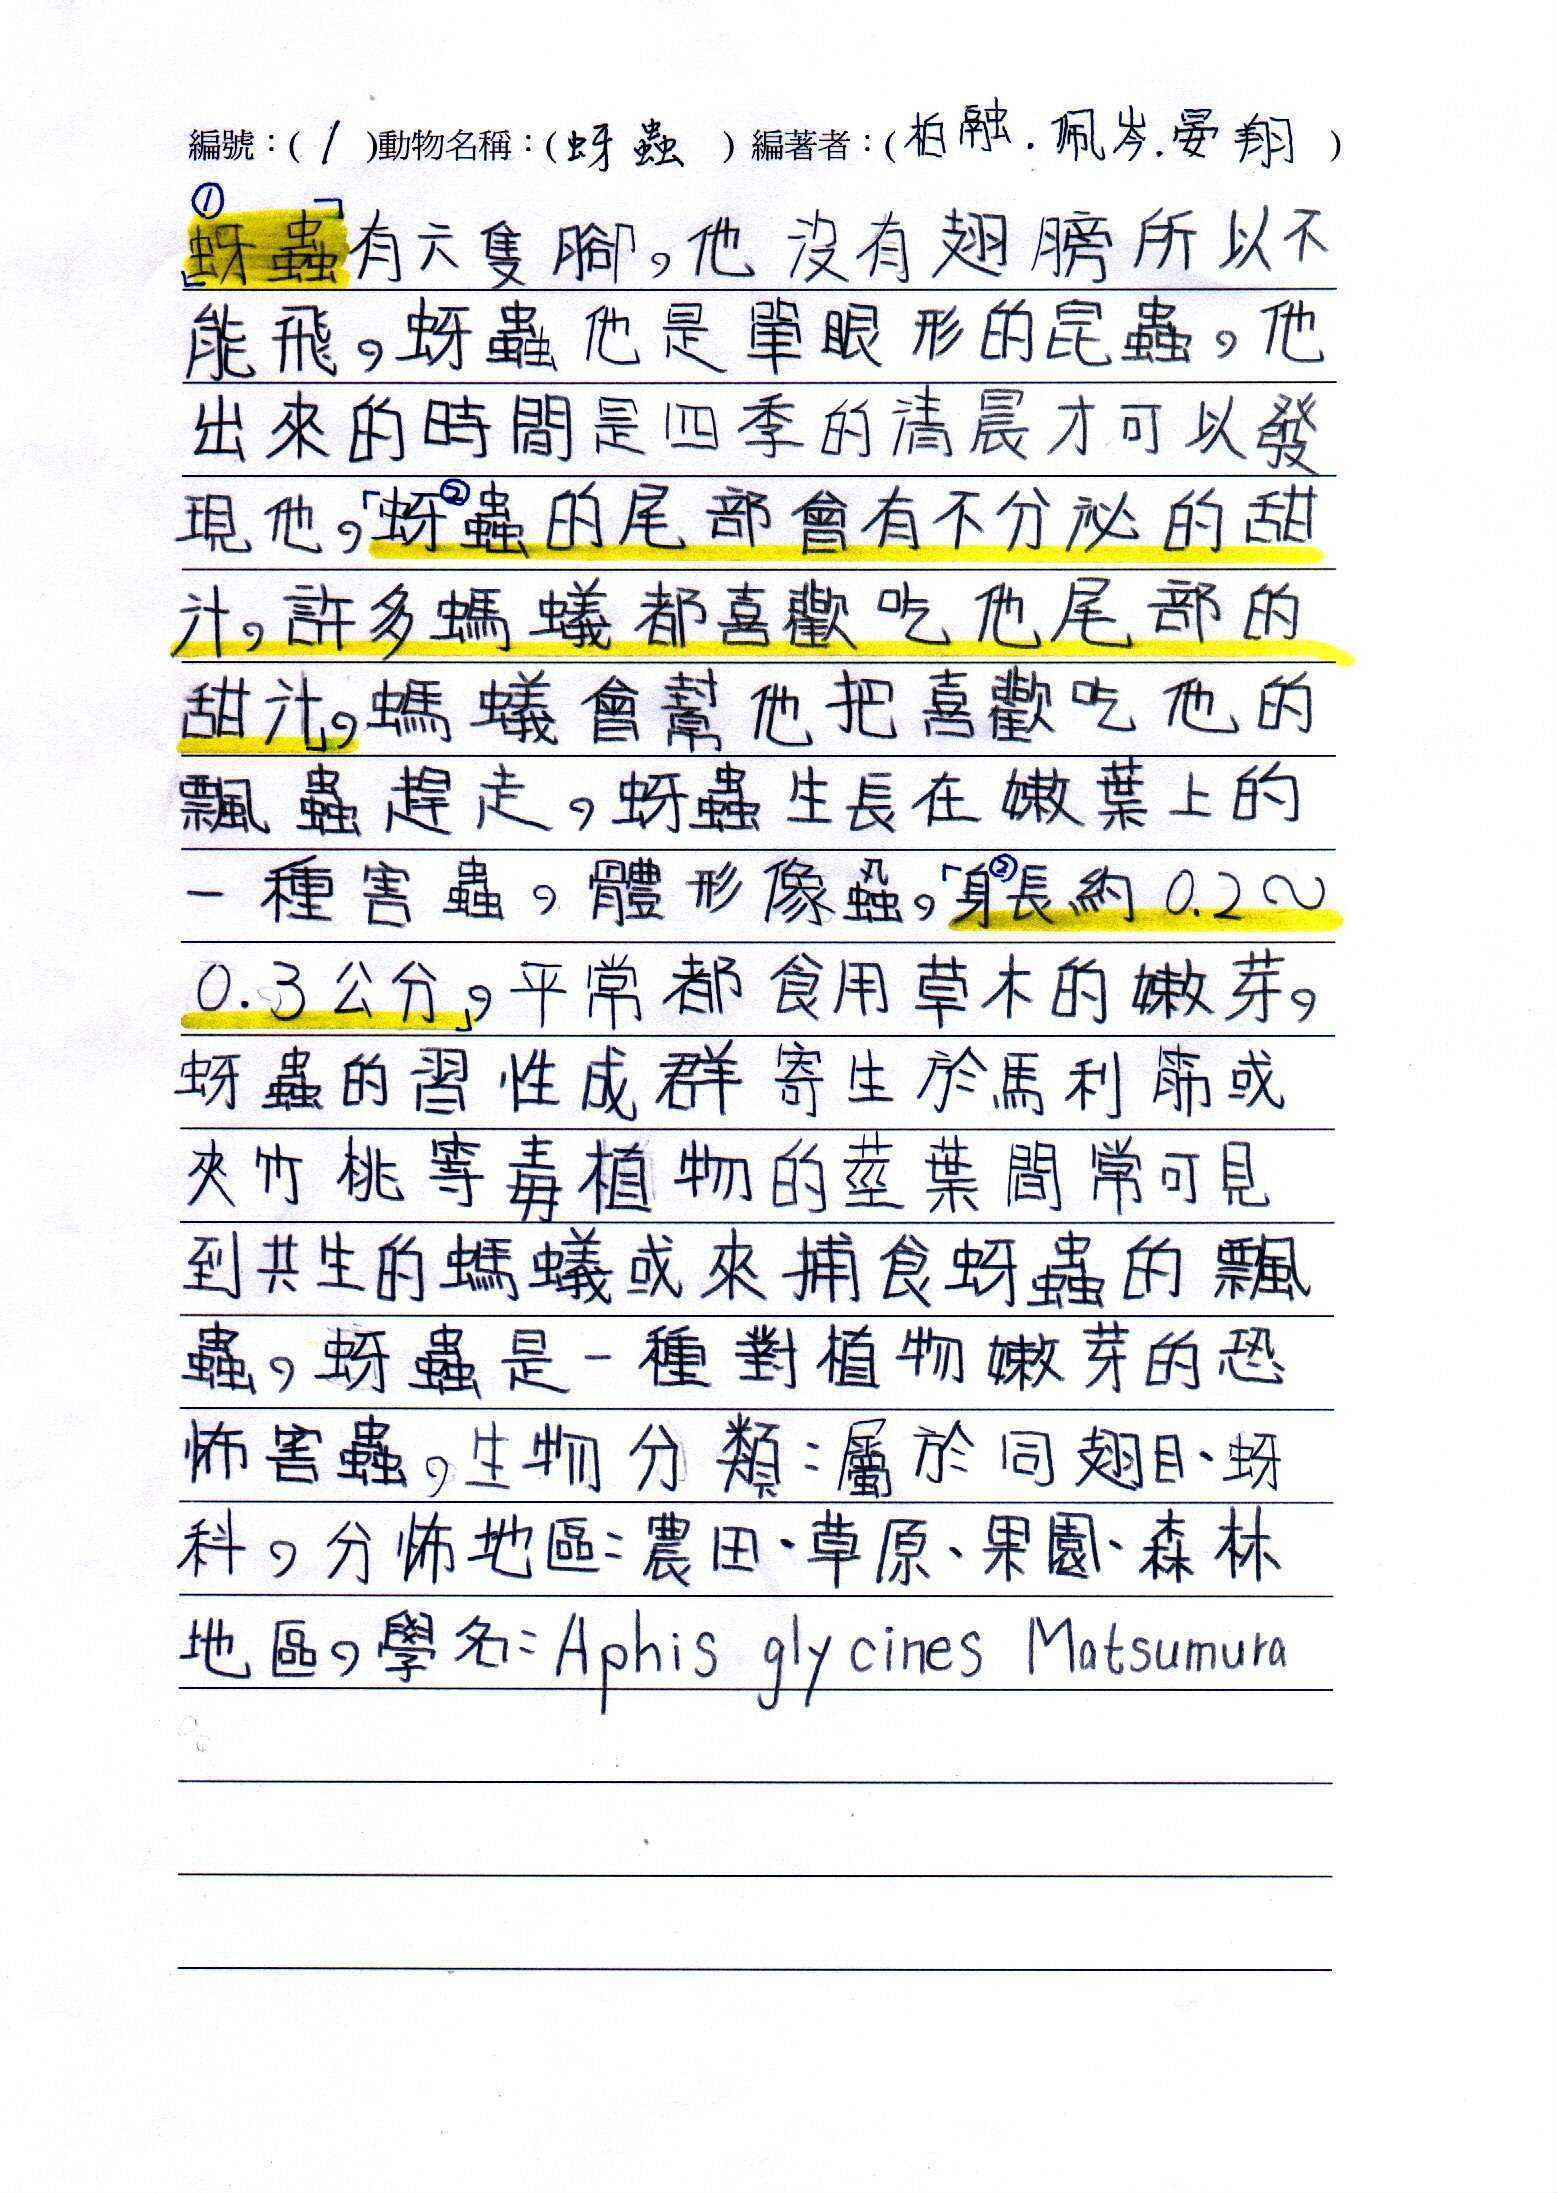 編號：( 1 )動物名稱：( 蚜蟲 ) 編著者：( 柏融．佩岑．晏翔 )
①
「蚜蟲」有六隻腳，他沒有翅膀所以不
能飛，蚜蟲他是單眼形的昆蟲，他
出來的時間是四季的清晨才可以發
現他，「②蚜蟲的尾部會有不分祕的甜
汁，許多螞蟻都喜歡吃他尾部的
甜汁」，螞蟻會幫他把喜歡吃他的
飄蟲趕走，蚜蟲生長在嫩葉上的
一種害蟲，體形像蝨，「③身長約0.2～
0.3公分」，平常都食用草木的嫩芽，
蚜蟲的習性成群寄生於馬利筋或
夾竹桃等毒植物的莖葉間常可見
到共生的螞蟻或來捕食蚜蟲的飄
蟲，蚜蟲是一種對植物嫩芽的恐
怖害蟲，生物分類：屬於同翅目、蚜
科，分怖地區：農田、草原、果園、森林
地區，學名：Aphis glycines Matsumura